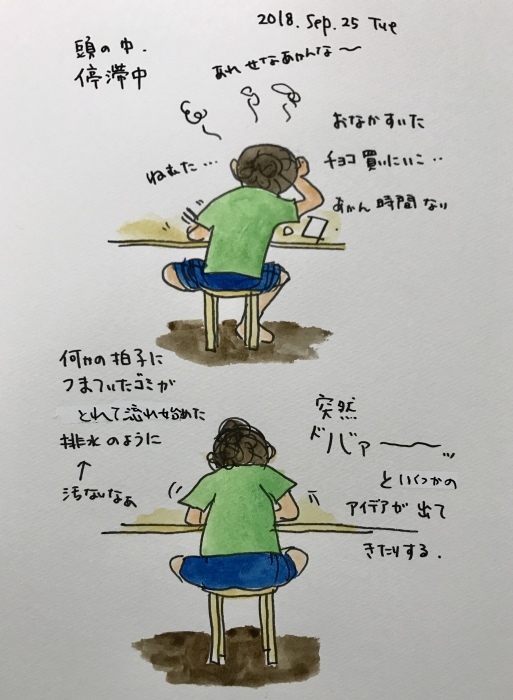 2018. Sep. 25 Tue
頭の中.
停滞中
あれ せなあかんな〜
おなかすいた
チョコ 買いにいこ..
ねむた...
あかん 時間 ない
何かの拍子に
つまていたゴミが
とれて流れ始めた
排水のように
↑
汚ないなぁ
突然
ドバァーーッ
といくつかの
アイデアが 出て
きたりする.